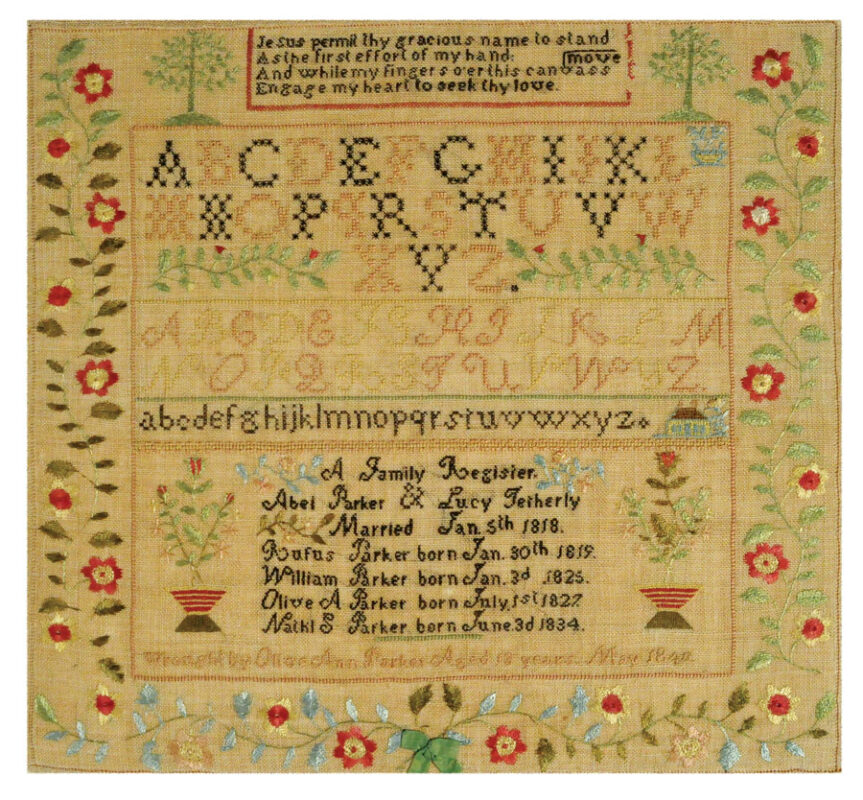 Jesus permit thy gracious name to stand
As the first effort of my hand:
move
And while my fingers o'er this canvass
Engage my heart to seek thy love.
A B C D E F G H I J K L
M N O P Q R S T U V W
X Y Z.
A B C D E F G H I J K L M
N O P Q R S T U V W Y Z.
abcdefghijklmnopqrstuvwxyz.
A Family Register.
Abel Parker & Lucy Tetherly
Married Jan. 5th 1818.
Rufus Parker born Jan. 30th 1819.
William Parker born Jan. 3d 1825.
Olive A Parker born July. 1st 1827.
Nathl S Parker born June 3d 1834.
Wrought by Olive Ann Parker Aged 12 years. May 1840.